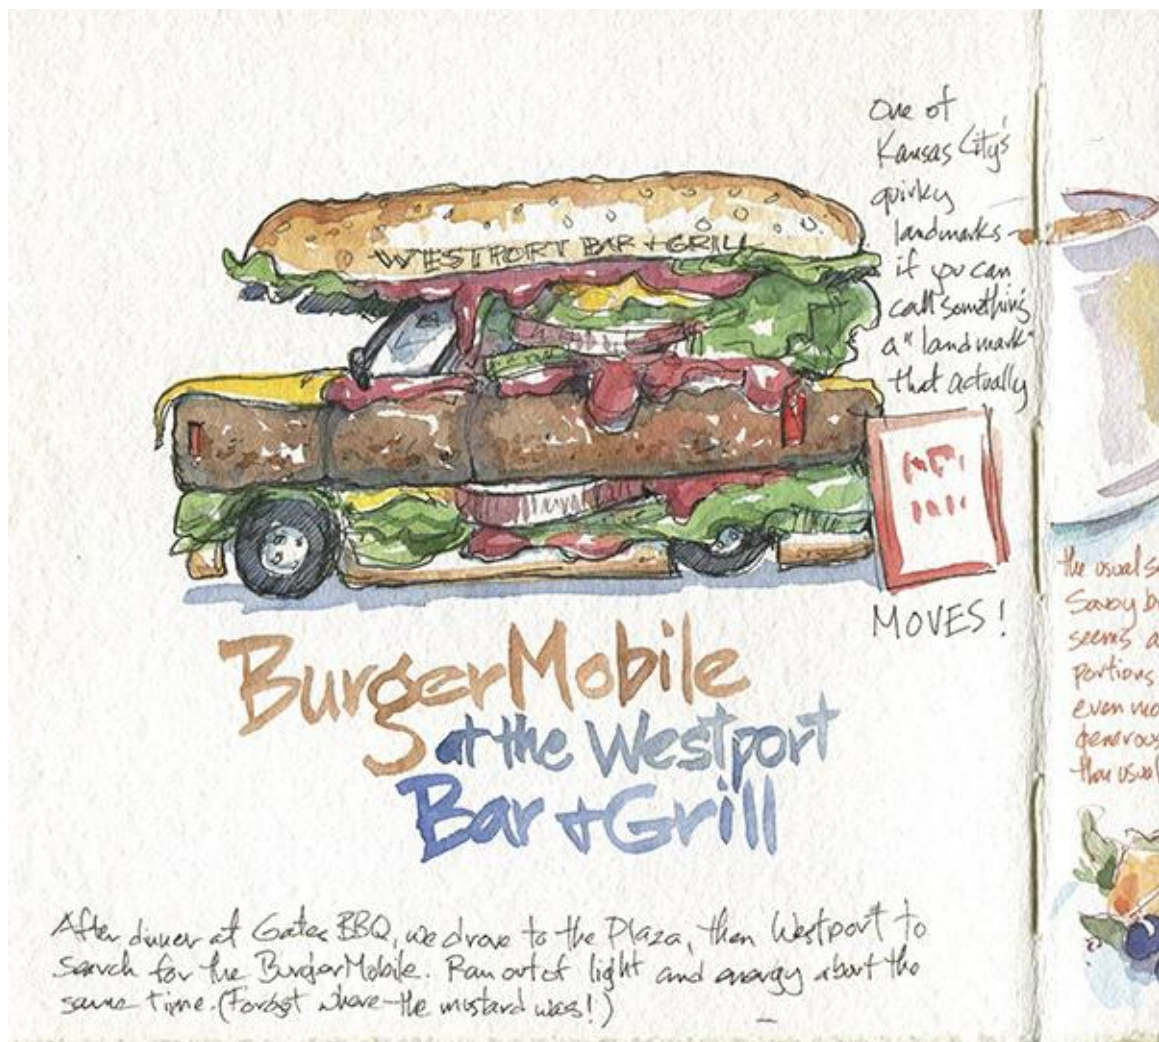 One of
Kansas City's
quirky
landmarks -
if you can
call something
a "landmark"
that actually
MOVES!
WESTPORT BAR + GRILL
BurgerMobile
at the Westport
Bar + Grill
After dinner at Gates BBQ, we drove to the Plaza, then Westport to
search for the BurgerMobile. Ran out of light and energy about the
same time. (Forgot where the mustard was!)
the usual
Savoy
seems
portions
even
generous
than usual